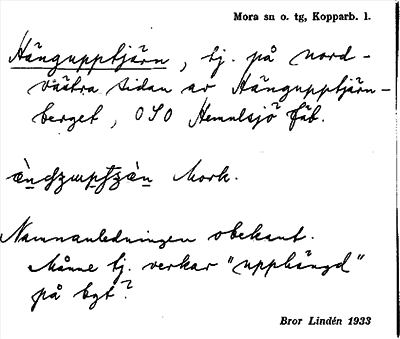 Mora sn o. tg, Kopparb. l.
Hängupptjärn, tj. på nord-
västra sidan av Hängupptjärn-
berget, OSO Hemulsjö fäb.
Mork.
Namnanledningen obekant.
Månne tj. verkar "upphängd"
på bgt?
Bror Lindén 1933